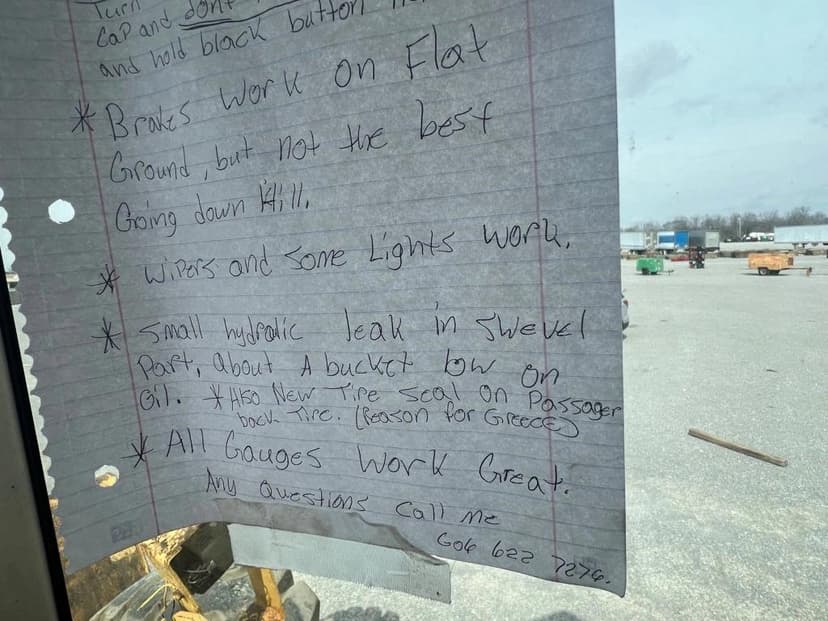 Turn
Cap and don't
and hold black button
* Brakes work on Flat
Ground, but not the best
Going down Hill.
* Wipers and Some Lights work.
* Small hydralic leak in Swevel
Part, about A bucket low on
Oil. * Also New Tire seal on Passager
back Tire. (Reason for Greece)
* All Gauges Work Great.
Any Questions Call Me
606 622 7276.